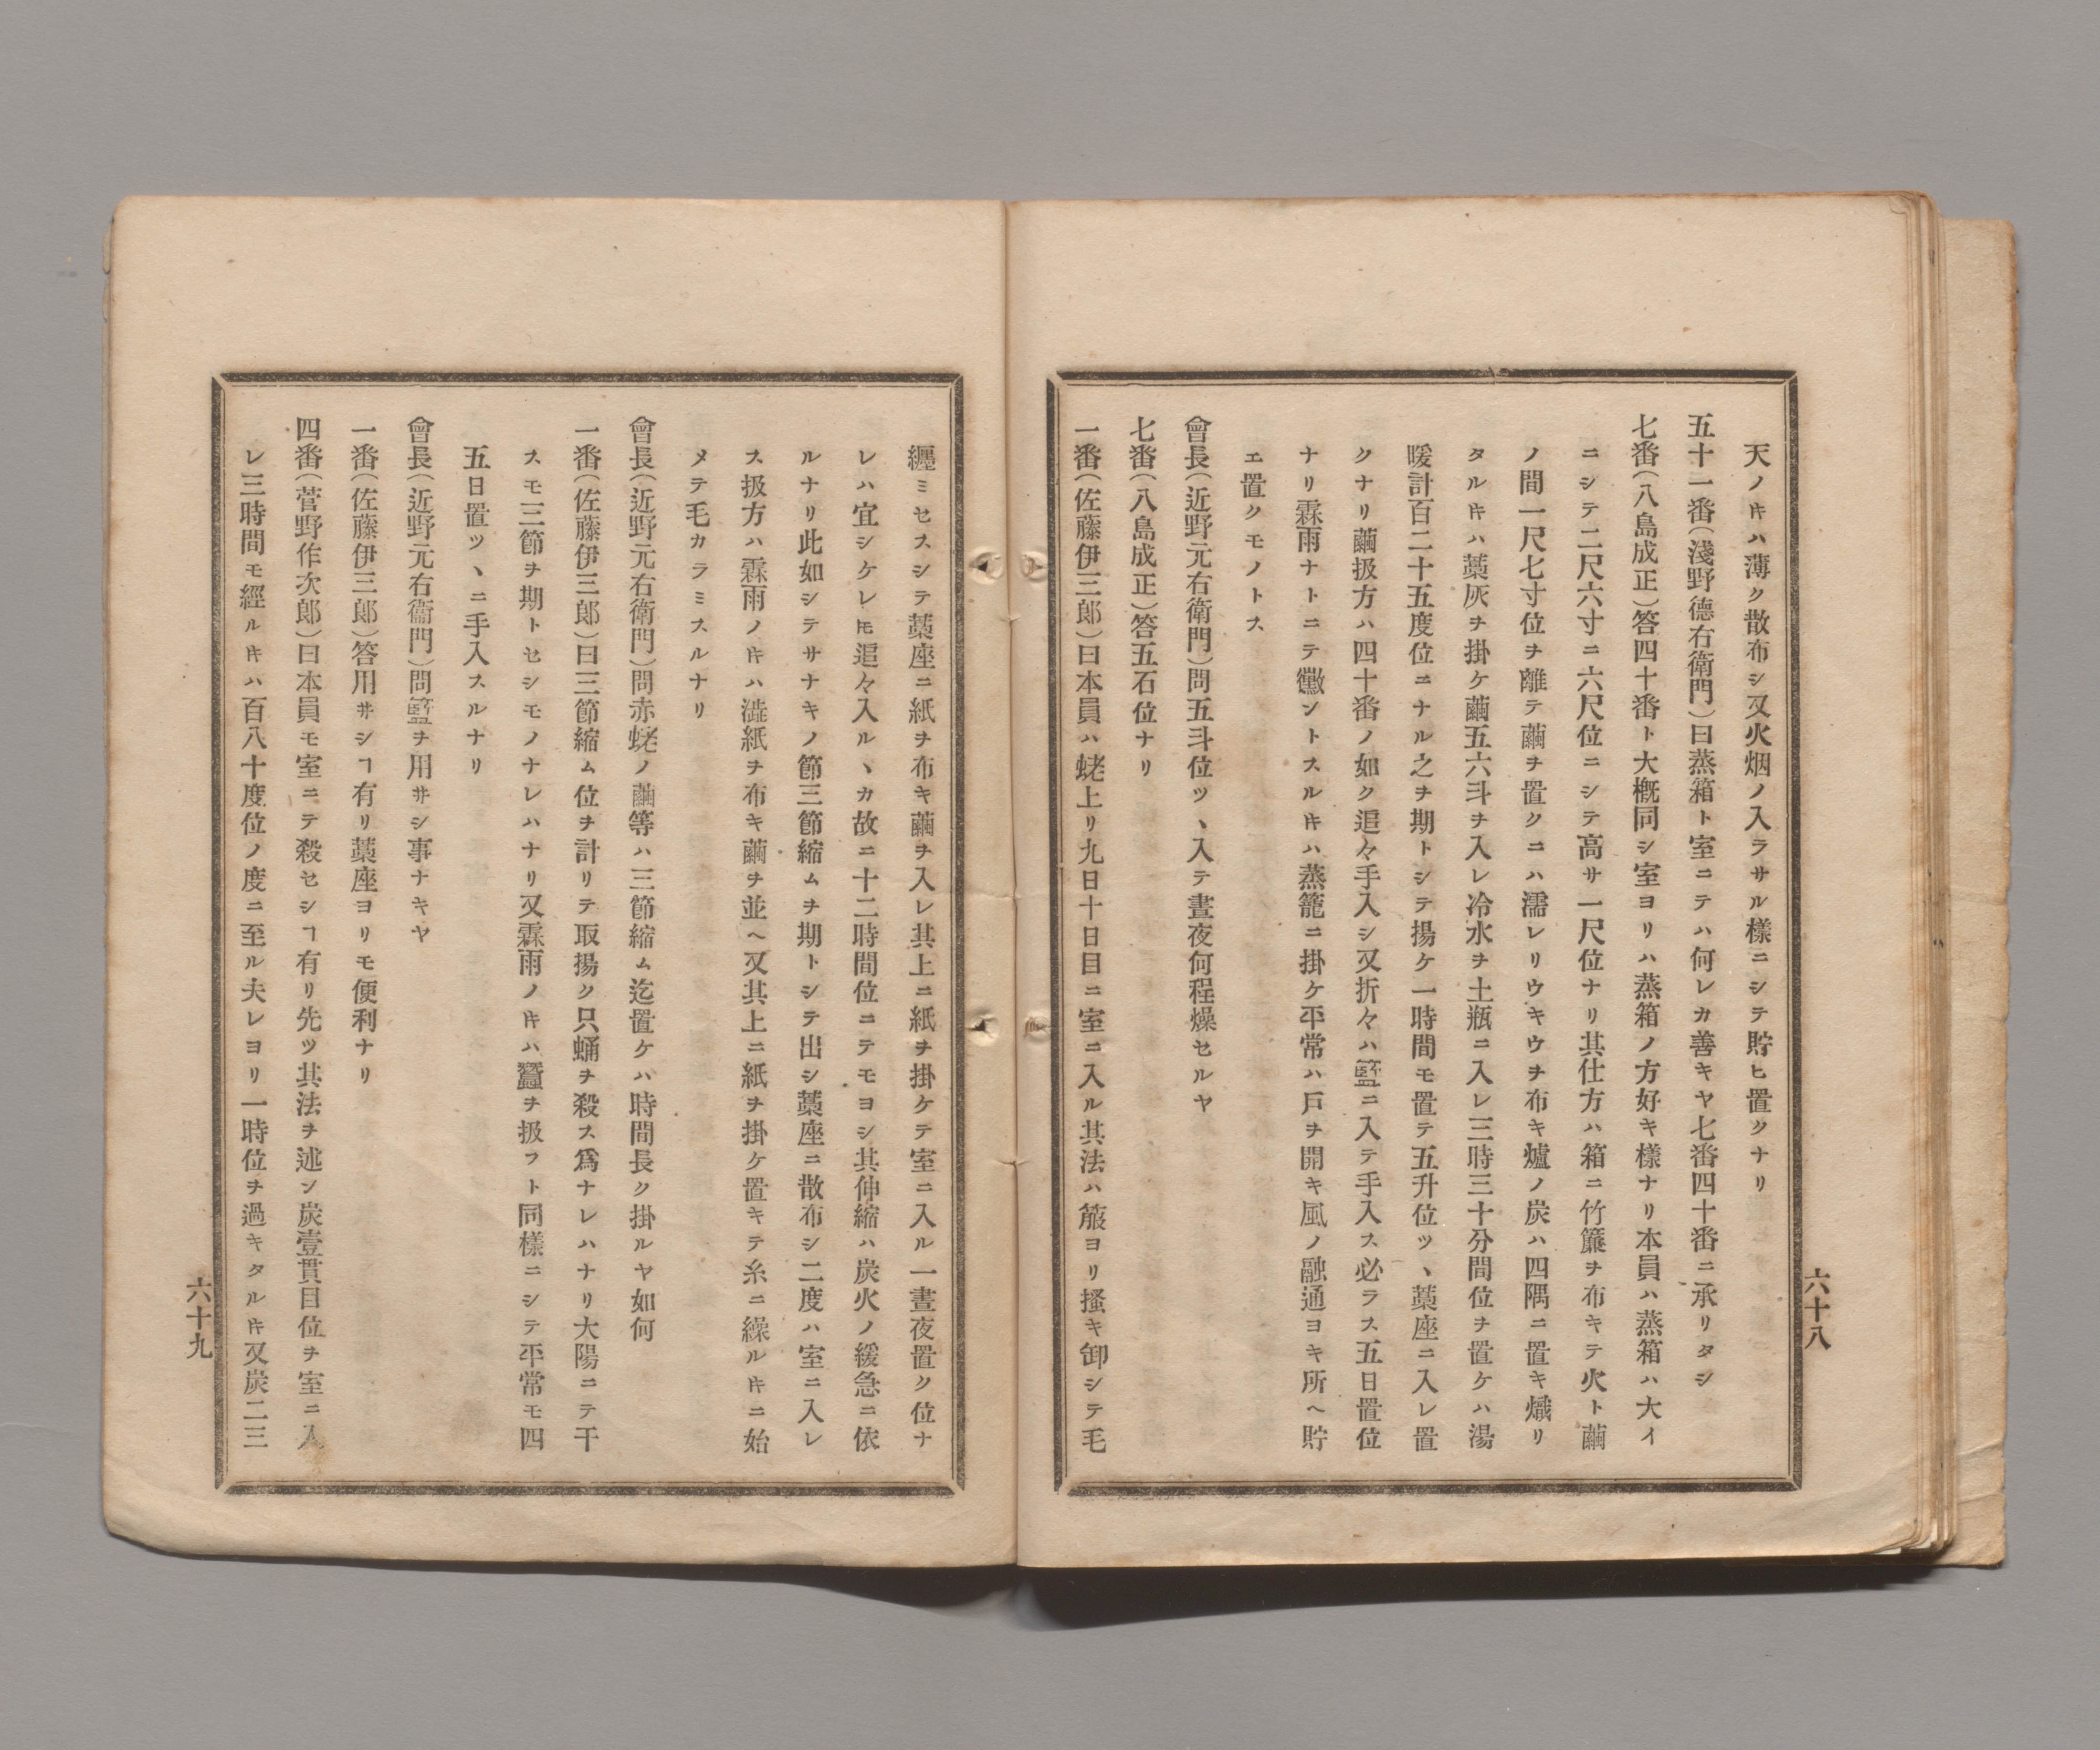 天ノ𪜈ハ薄ク散布シ又火烟ノ入ラサル樣ニシテ貯ヒ置クナリ
五十一番(淺野德右衛門)曰蒸箱ト室ニテハ何レカ善キヤ七番四十番ニ承リタシ
七番(八島成正)答四十番ト大槪同シ室ヨリハ蒸箱ノ方好キ樣ナリ本員ハ蒸箱ハ大イ
ニシテ二尺六寸ニ六尺位ニシテ高サ一尺位ナリ其仕方ハ箱ニ竹簾ヲ布キテ火ト繭
ノ間一尺七寸位ヲ離テ繭ヲ置クニハ濡レリウキウヲ布キ爐ノ炭ハ四隅ニ置キ熾リ
タル𪜈ハ藁灰ヲ掛ケ繭五六斗ヲ入レ冷水ヲ土瓶ニ入レ三時三十分間位ヲ置ケハ湯
暖計百二十五度位ニナル之ヲ期トシテ揚ケ一時間モ置テ五升位ツヽ藁座ニ入レ置
クナリ繭扱方ハ四十番ノ如ク追々手入シ又折々ハ籃ニ入テ手入ス必ラス五日置位
ナリ霖雨ナトニテ黴ントスル𪜈ハ蒸籠ニ掛ケ平常ハ戸ヲ開キ風ノ融通ヨキ所ヘ貯
エ置クモノトス
會長(近野元右衛門)問五斗位ツヽ入テ晝夜何程燥セルヤ
七番(八島成正)答五石位ナリ
一番(佐藤伊三郎)曰本員ハ蛯上リ九日十日目ニ室ニ入ル其法ハ簇ヨリ搔キ卸シテ毛
六十八
纒ミセスシテ藁座ニ紙ヲ布キ繭ヲ入レ其上ニ紙ヲ掛ケテ室ニ入ル一晝夜置ク位ナ
レハ宜シケレ𪜈追々入ルヽカ故ニ十二時間位ニテモヨシ其伸縮ハ炭火ノ緩急ニ依
ルナリ此如シテサナキノ節三節縮ムヲ期トシテ出シ藁座ニ散布シ二度ハ室ニ入レ
ス扱方ハ霖雨ノ𪜈ハ澁紙ヲ布キ繭ヲ並ヘ又其上ニ紙ヲ掛ケ置キテ糸ニ繰ル𪜈ニ始
メテ毛カラミスルナリ
會長(近野元右衛門)問赤蛯ノ繭等ハ三節縮ム迄置ケハ時間長ク掛ルヤ如何
一番(佐藤伊三郎)曰三節縮ム位ヲ計リテ取揚ク只蛹ヲ殺ス爲ナレハナリ大陽ニテ干
スモ三節ヲ期トセシモノナレハナリ又霖雨ノ𪜈ハ蠶ヲ扱フト同樣ニシテ平常モ四
五日置ツヽニ手入スルナリ
會長(近野元右衞門)問籃ヲ用井シ事ナキヤ
一番(佐藤伊三郎)答用井シヿ有リ藁座ヨリモ便利ナリ
四番(菅野作次郎)曰本員モ室ニテ殺セシヿ有リ先ツ其法ヲ述ン炭壹貫目位ヲ室ニ入
レ三時間モ經ル𪜈ハ百八十度位ノ度ニ至ル夫レヨリ一時位ヲ過キタル𪜈又炭二三
六十九